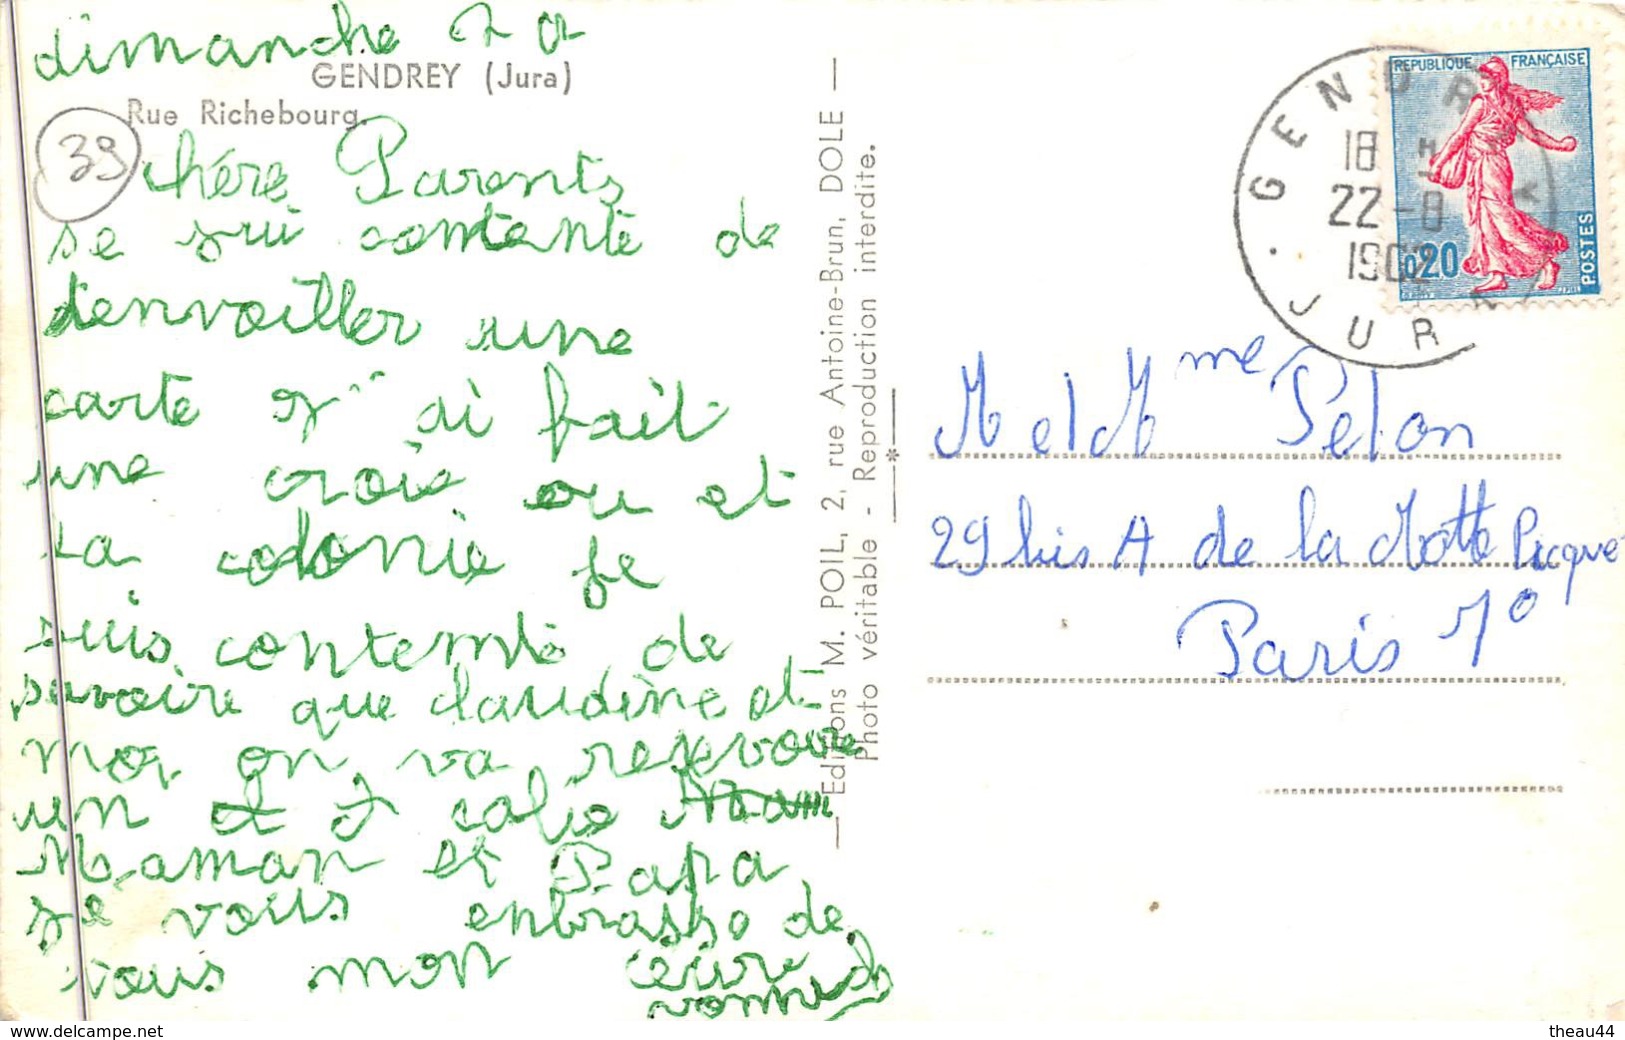 dimanche
GENDREY (Jura)
Rue Richebourg.
39
chére Parents
se sui contente de
denvoiller une
carte j' ai fait
une crois ou et
la colonie je
suis contente de
savoire que claudine et
moi on va resevoire
un colie
Maman et Papa
je vous enbrasse de
tous mon cœure
Editions M. POIL, 2, rue Antoine-Brun, DOLE
Photo véritable - Reproduction interdite.
GENDREY
18 H
22-8
1962
JURA
REPUBLIQUE FRANÇAISE
0,20
POSTES
M et Mme Pelon
29 bis A de la Motte Picque
Paris 7°
www.delcampe.net
theau44